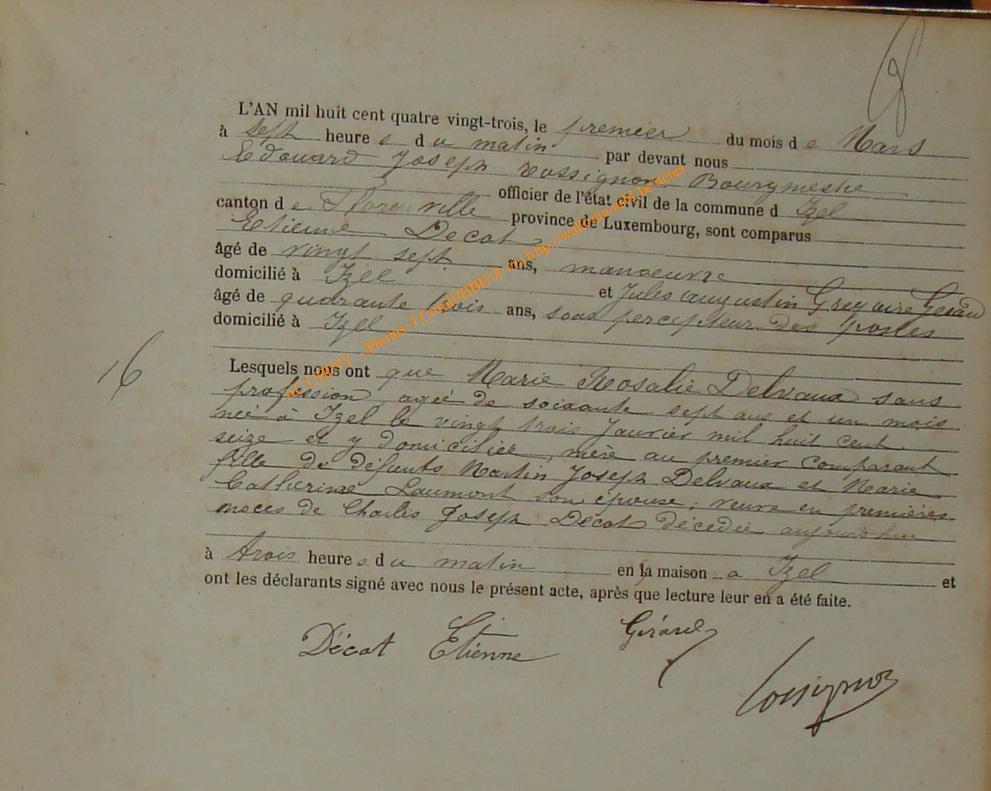 8
L'AN mil huit cent quatre vingt-trois, le premier du mois de Mars
à sept heures du matin par devant nous
Edouard Joseph Rossignon Bourgmestre
officier de l'état civil de la commune d Izel
canton de Florenville province de Luxembourg, sont comparus
Etienne Decot
âgé de vingt sept ans, manoeuvre
domicilié à Izel et Jules Augustin Grégoire Gérard
âgé de quarante trois ans, sous percepteur des postes
domicilié à Izel
16
Lesquels nous ont que Marie Rosalie Delvaux sans
profession, agée de soixante sept ans et un mois
née à Izel le vingt trois Janvier mil huit cent
seize et y domiciliée, mère au premier comparant
fille de défunts Martin Joseph Delvaux et Marie
Catherine Laumont son épouse; veuve en premières
noces de Charles Joseph Décot décédée aujourd'hui
à trois heures du matin en la maison a Izel et
ont les déclarants signé avec nous le présent acte, après que lecture leur en a été faite.
Décot Etienne Gérard
Rossignon